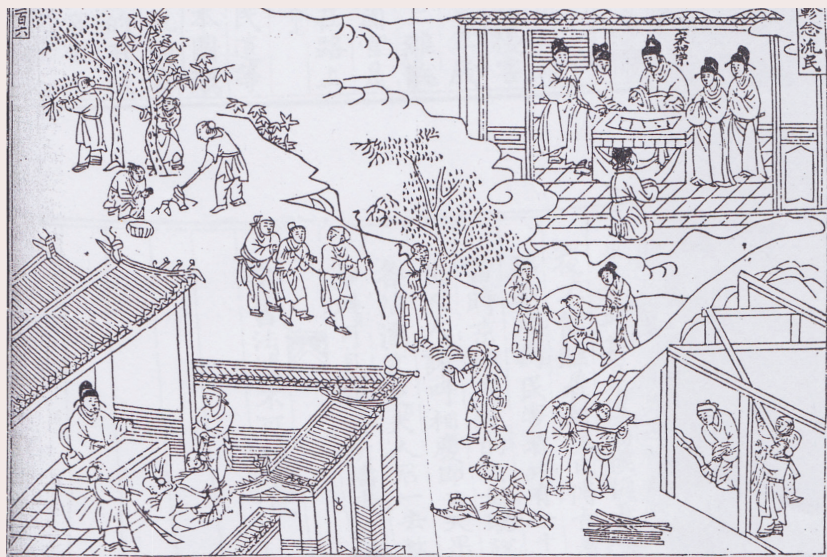 軫念流民
宋神宗
百六